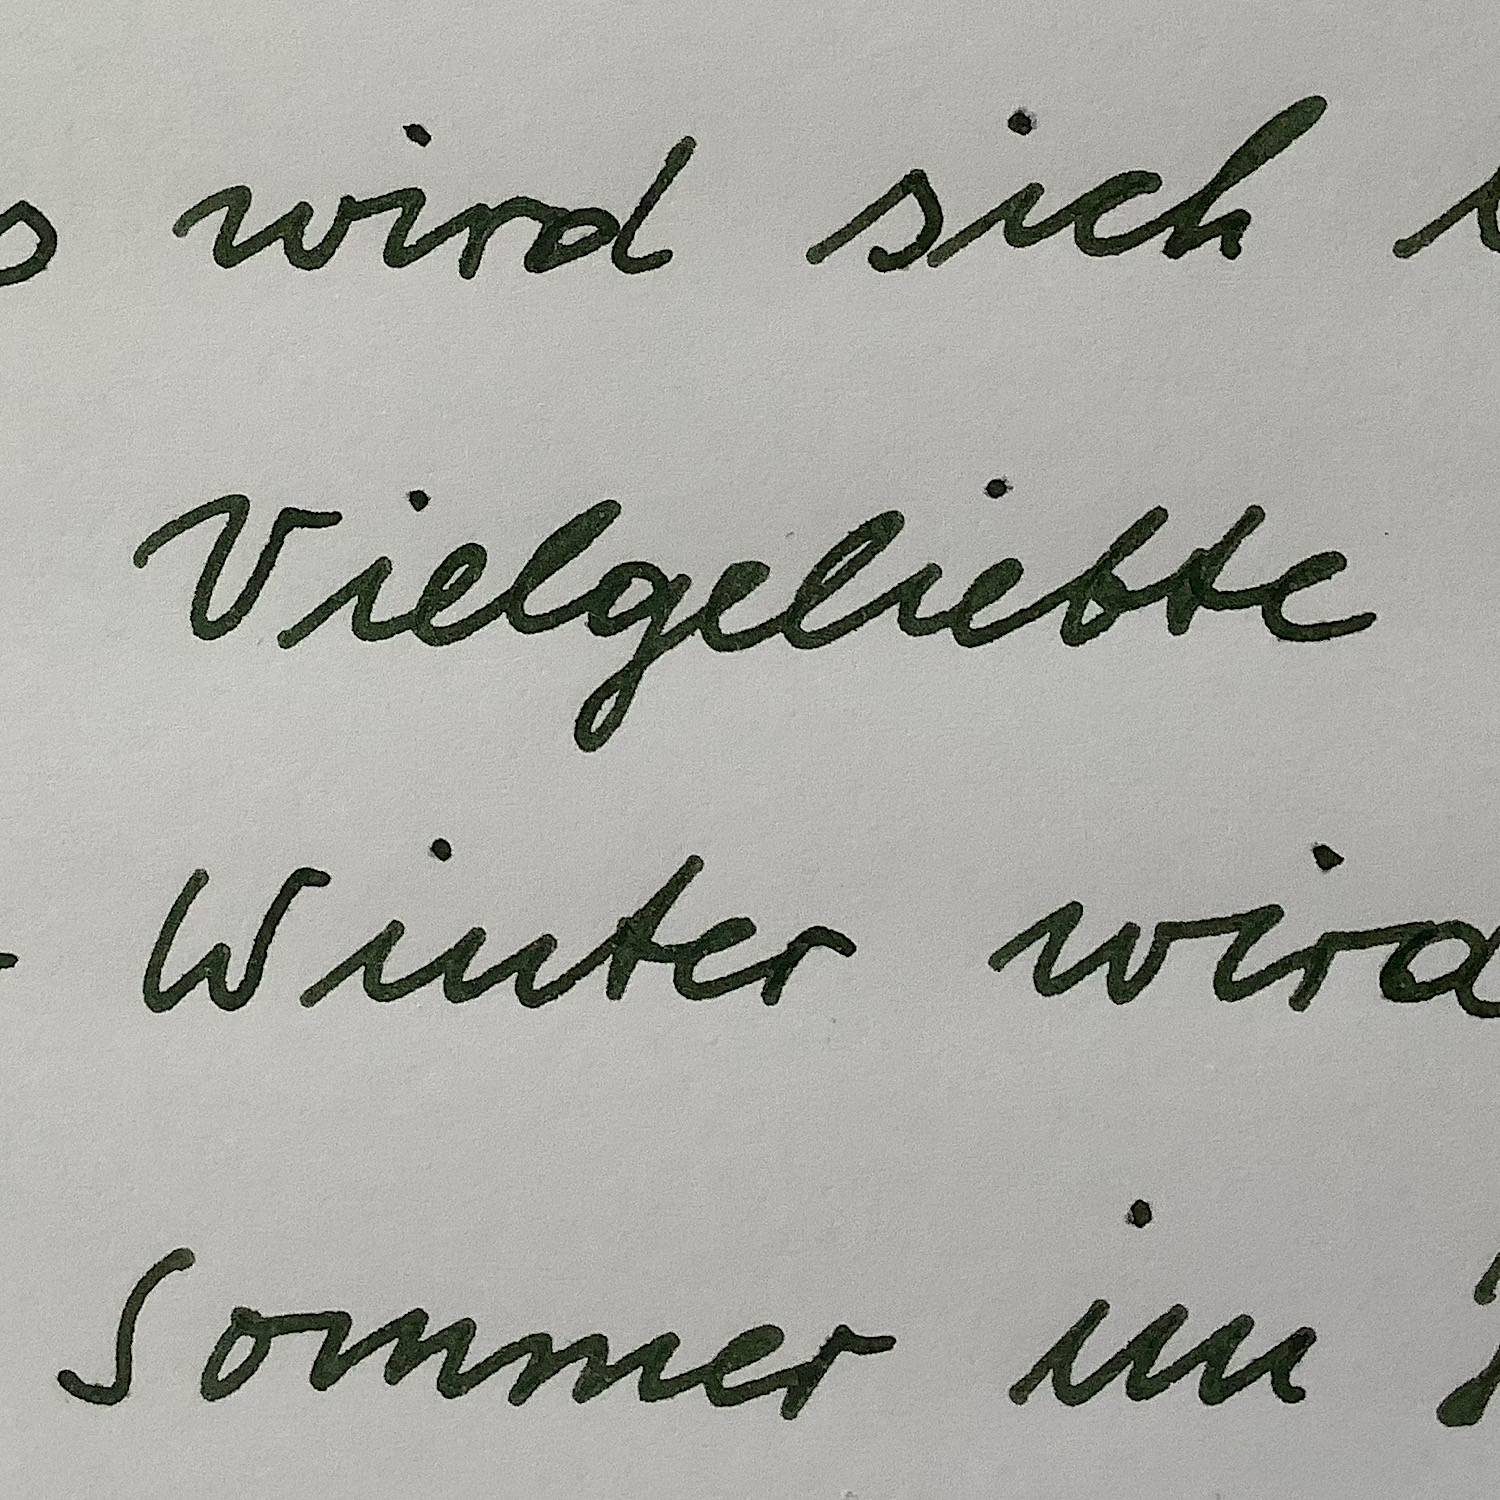 wird sich
Vielgeliebte
Winter wird
Sommer im